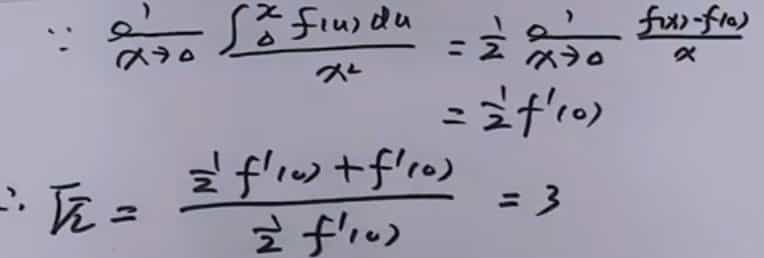 ∵ lim_{x→0} \frac{∫_0^x f(u)du}{x²} = \frac{1}{2} lim_{x→0} \frac{f(x)-f(0)}{x}
= \frac{1}{2} f'(0)
∴ 原式 = \frac{\frac{1}{2} f'(0) + f'(0)}{\frac{1}{2} f'(0)} = 3